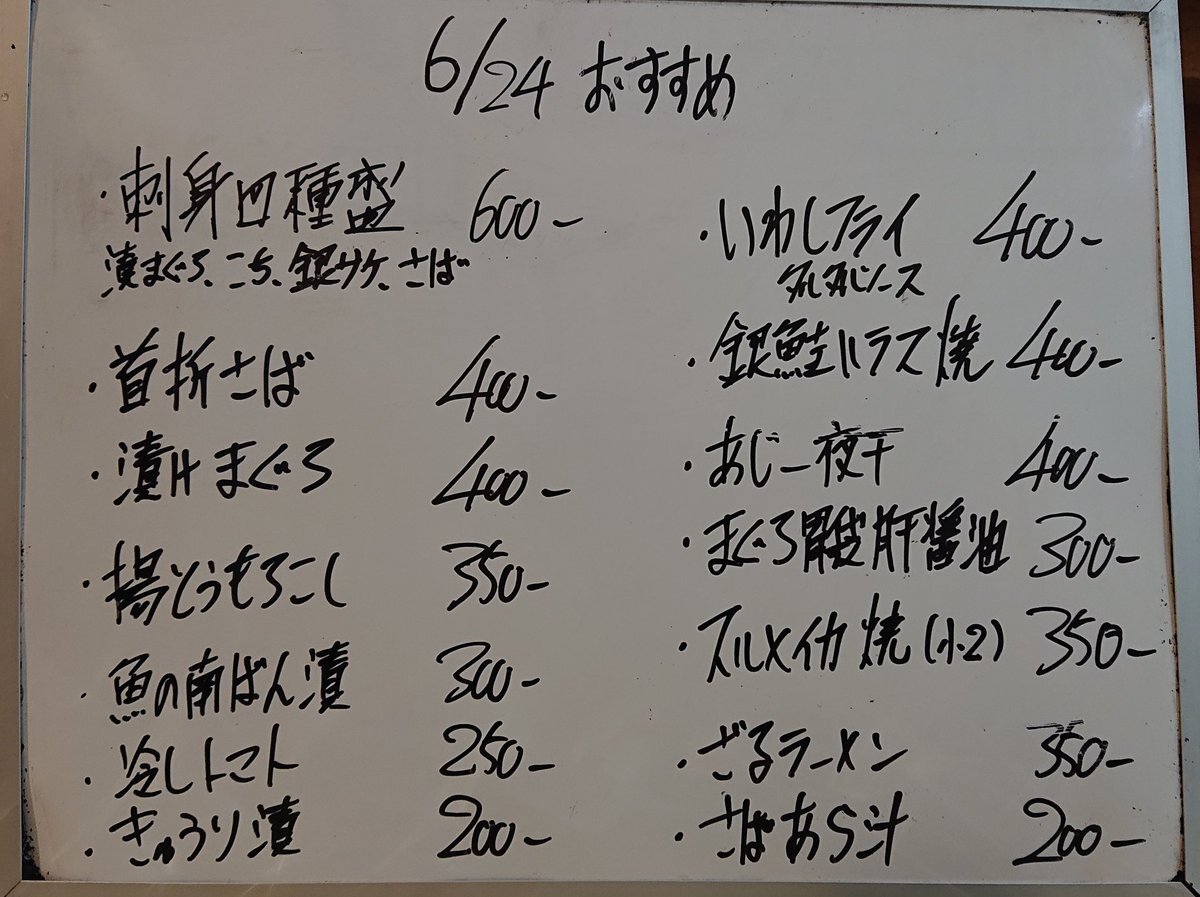 6/24 おすすめ
・刺身四種盛 600-
漬まぐろ、こち、銀サケ、さば
・首折さば 400-
・漬けまぐろ 400-
・揚とうもろこし 350-
・魚の南ばん漬 300-
・冷しトマト 250-
・きゅうり漬 200-
・いわしフライ 400-
タルタルソース
・銀鮭ハラス焼 400-
・あじ一夜干 400-
・まぐろ胃袋肝醤油 300-
・スルメイカ焼(小2) 350-
・ざるラーメン 350-
・さばあら汁 200-